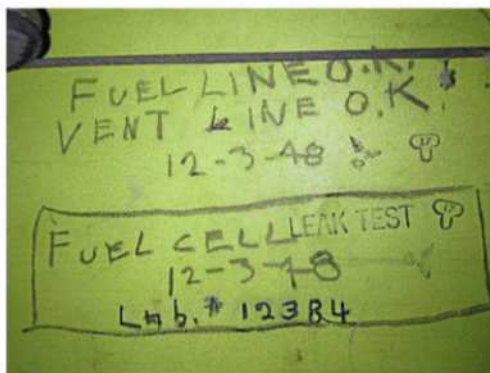 FUEL LINE O.K!
VENT LINE O.K!
12-3-48
FUEL CELL LEAK TEST
12-3-48
Lmb.# 12384